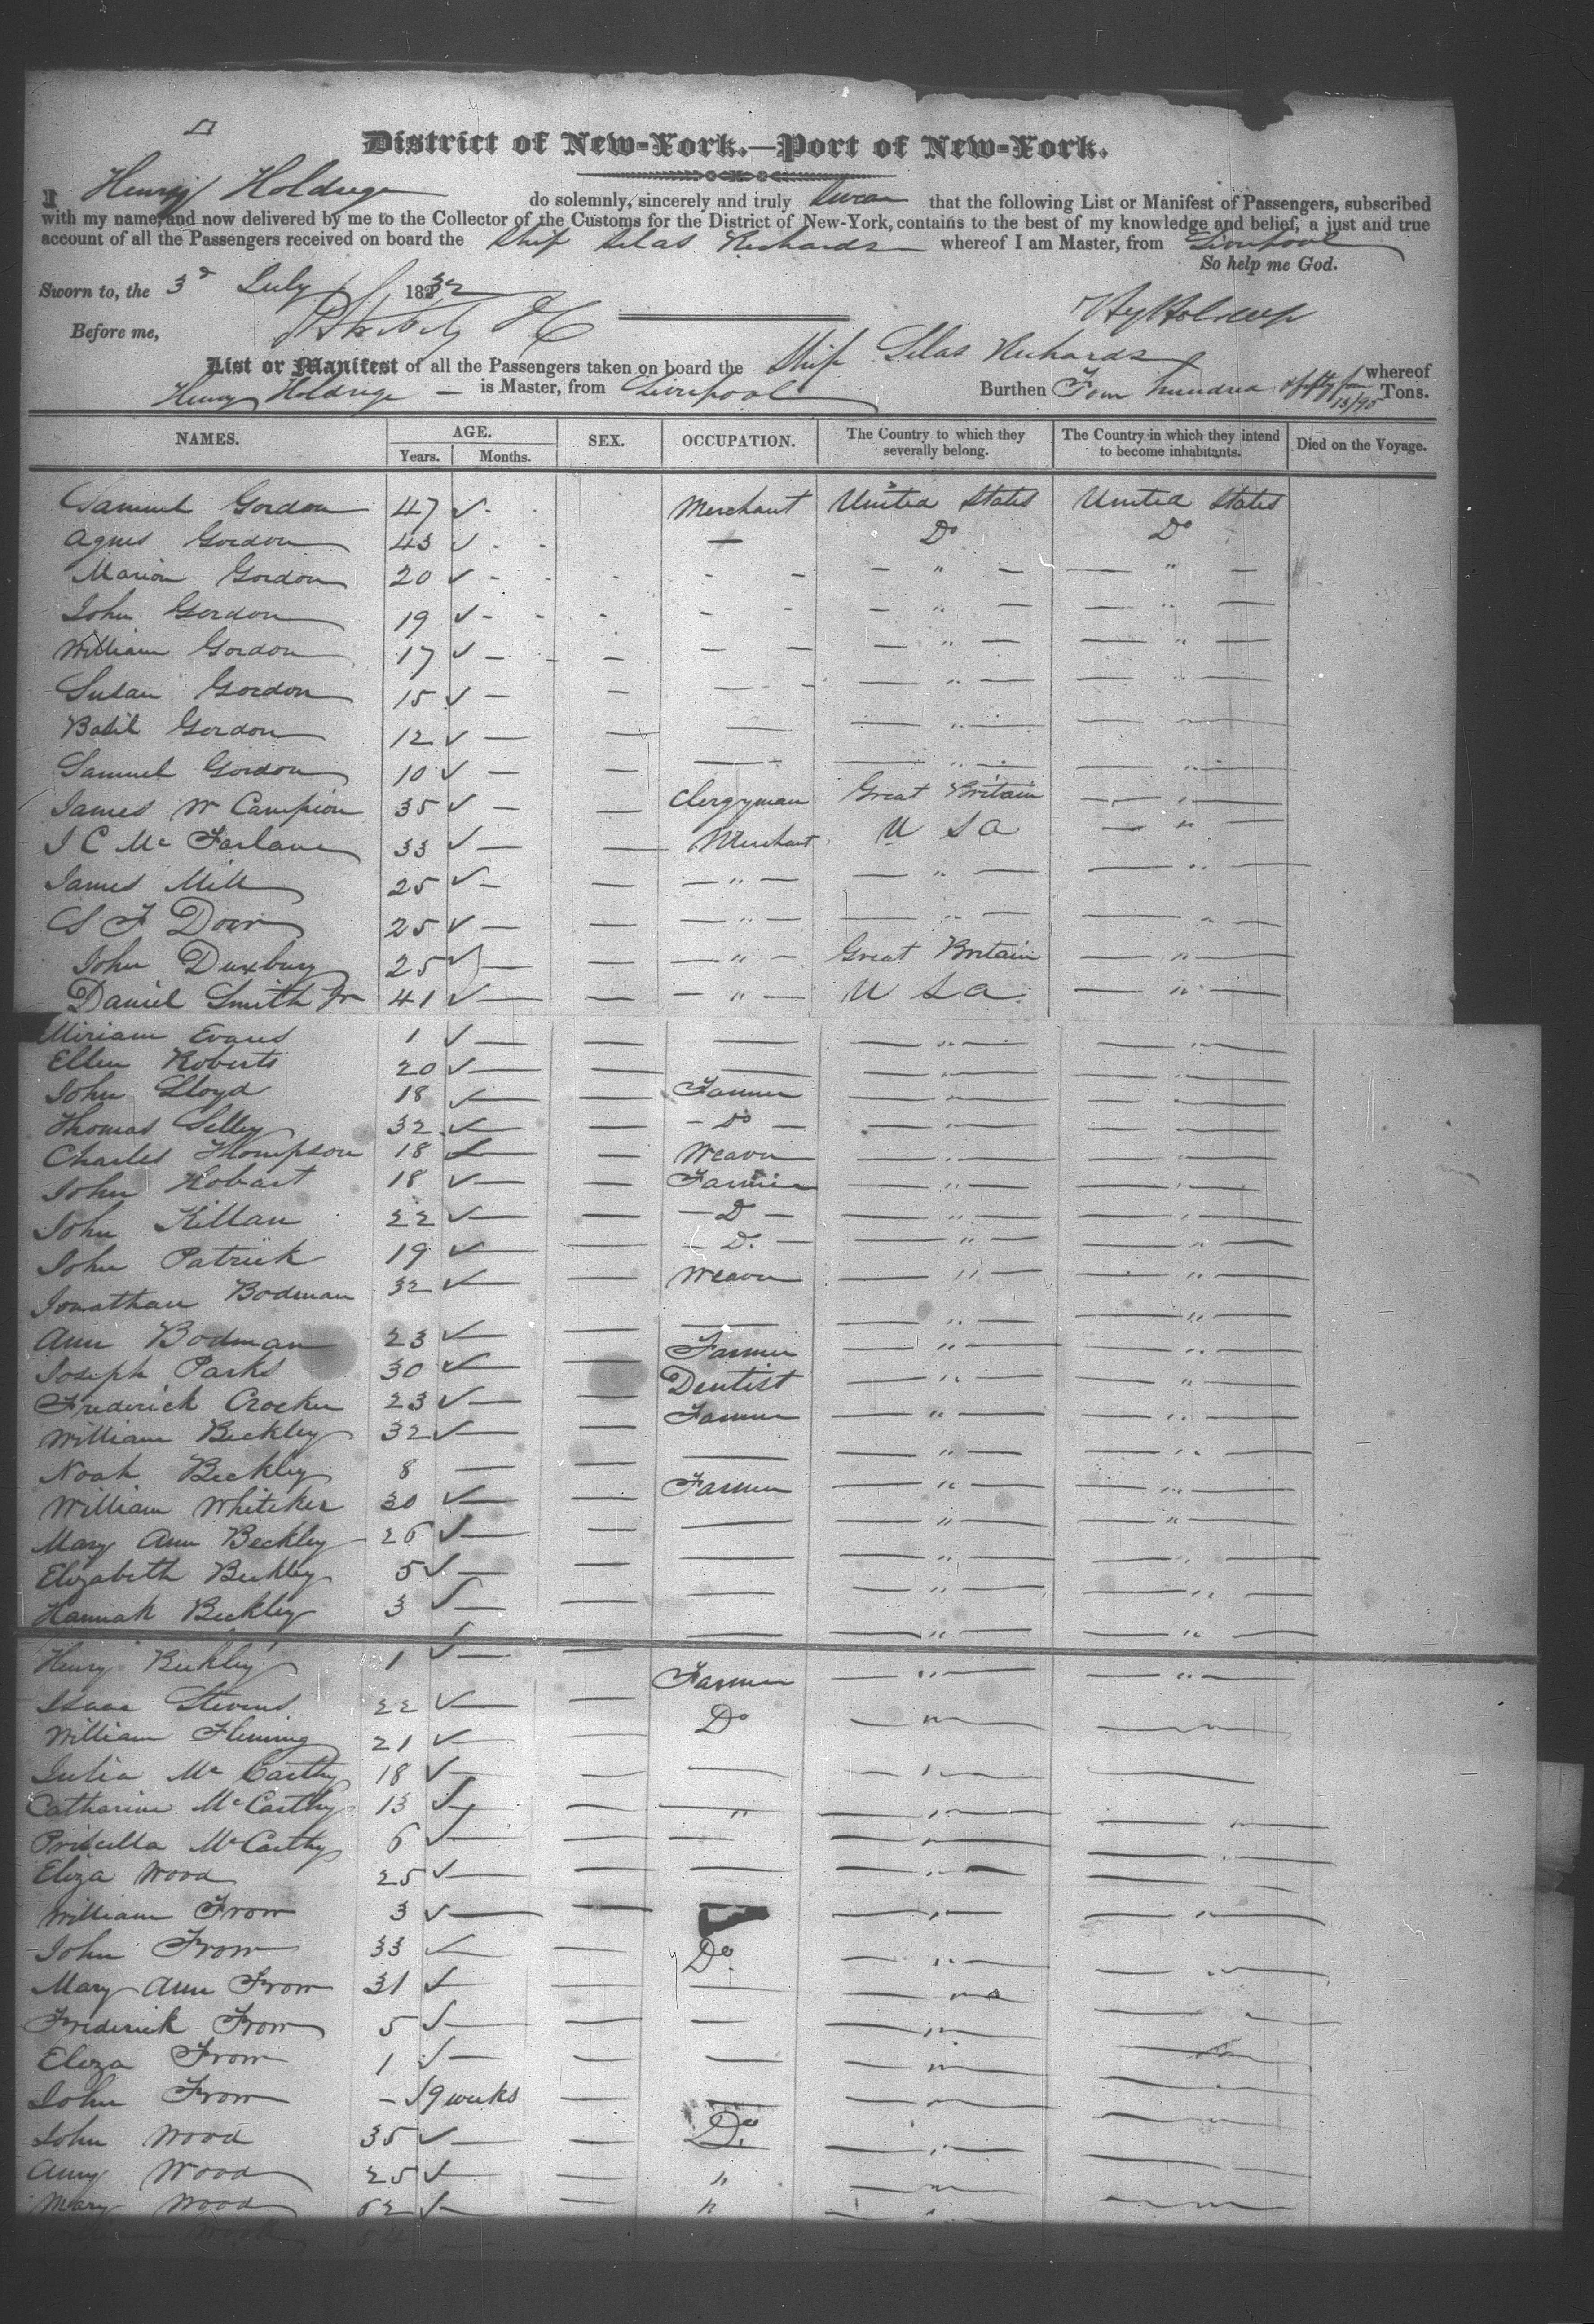 District of New-York.—Port of New-York.
I Henry Holdrege do solemnly, sincerely and truly swear that the following List or Manifest of Passengers, subscribed
with my name, and now delivered by me to the Collector of the Customs for the District of New-York, contains to the best of my knowledge and belief, a just and true
account of all the Passengers received on board the Ship Silas Richards whereof I am Master, from Liverpool
So help me God.
Sworn to, the 3d July 1832
Before me,
Hy Holdrege
List or Manifest of all the Passengers taken on board the Ship Silas Richards whereof
Henry Holdrege is Master, from Liverpool Burthen Four hundred & fifty four 13/95 Tons.
NAMES. AGE. SEX. OCCUPATION. The Country to which they severally belong. The Country in which they intend to become inhabitants. Died on the Voyage.
Years. Months.
Samuel Gordon 47 Merchant United States United States
Agnes Gordon 43 — Do Do
Marion Gordon 20 - - " "
John Gordon 19 - - " "
William Gordon 17 — — " "
Susan Gordon 15 — " "
Basil Gordon 12 — " "
Samuel Gordon 10 — " "
James W Campion 35 Clergyman Great Britain "
J C Mc Farlane 33 Merchant U S A "
James Mill 25 " " "
S F Dorr 25 " " "
John Duxbury 25 " Great Britain "
Daniel Smith Jr 41 " U S A "
Miriam Evans 1 — " "
Ellen Roberts 20 — " "
John Lloyd 18 Farmer " "
Thomas Selley 32 Do " "
Charles Thompson 18 Weaver " "
John Hobart 18 Farmer " "
John Killan 22 D " "
John Patrick 19 D. " "
Jonathan Bodman 32 Weaver " "
Ann Bodman 23 — " "
Joseph Parks 30 Farmer " "
Frederick Crocker 23 Dentist " "
William Beckley 32 Farmer " "
Noah Beckley 8 — " "
William Whiteker 30 Farmer " "
Mary Ann Beckley 26 — " "
Elizabeth Beckley 5 — " "
Hannah Beckley 3 — " "
Henry Beckley 1 — " "
Isaac Stevens 22 Farmer " "
William Fleming 21 Do " "
Julia Mc Carthy 18 — " —
Catharine McCarthy 13 " " "
Priscilla McCarthy 6 — " "
Eliza Wood 25 — " —
William From 3 — " "
John From 33 Do " "
Mary Ann From 31 — " "
Frederick From 5 — " "
Eliza From 1 — " "
John From - 9 weeks — " "
John Wood 35 Do " —
Amy Wood 25 " " "
Mary Wood 62 " "